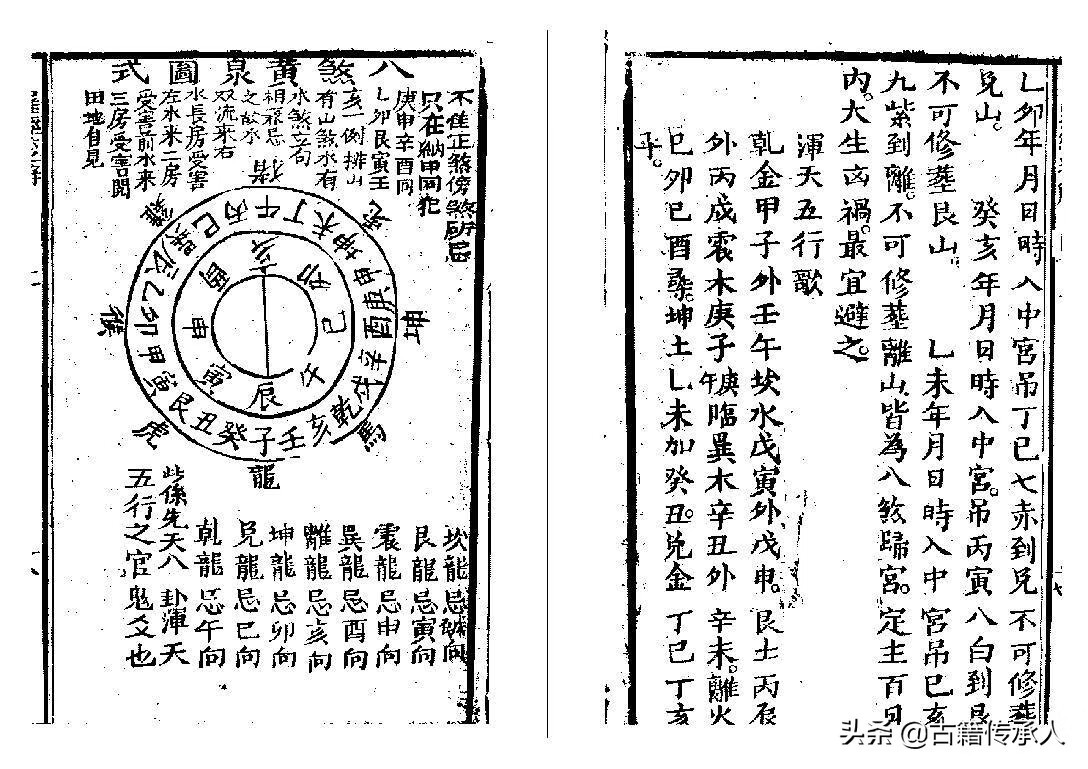 乙卯年月日時入中宮吊丁巳七赤到兌不可修塟
兌山。癸亥年月日時入中宮。吊丙寅八白到艮
不可修塟艮山。乙未年月日時入中宮吊己亥
九紫到離。不可修塟離山。皆為八煞歸宮。定主百日
內。大生凶禍最宜避之。
渾天五行歌
乾金甲子外壬午坎水戊寅外戊申。艮土丙辰
外丙戌震木庚子庚午臨巽木辛丑外辛未。離火
己卯己酉尋。坤土乙未加癸丑。兌金丁巳丁亥
平。
八煞黃泉圖式
不隹正煞傍煞所忌
只在納甲同犯
庚申辛酉同
乙卯艮寅壬
亥一例排山
有山煞水有
水煞立向
忌
之故水
双流来右
水長房受害
左水来二房
受害前水来
三房受害聞
田地自見
猪
兔
坤
馬
龍
虎
猴
雞
午丁未坤申庚酉辛戌乾亥壬子癸丑艮寅甲卯乙辰巽巳丙
亥卯巳午辰寅申酉
坎龍忌向
艮龍忌寅向
震龍忌申向
巽龍忌酉向
離龍忌亥向
坤龍忌卯向
兌龍忌巳向
乾龍忌午向
此係先天八卦渾天
五行之官鬼爻也
头条 @古籍传承人